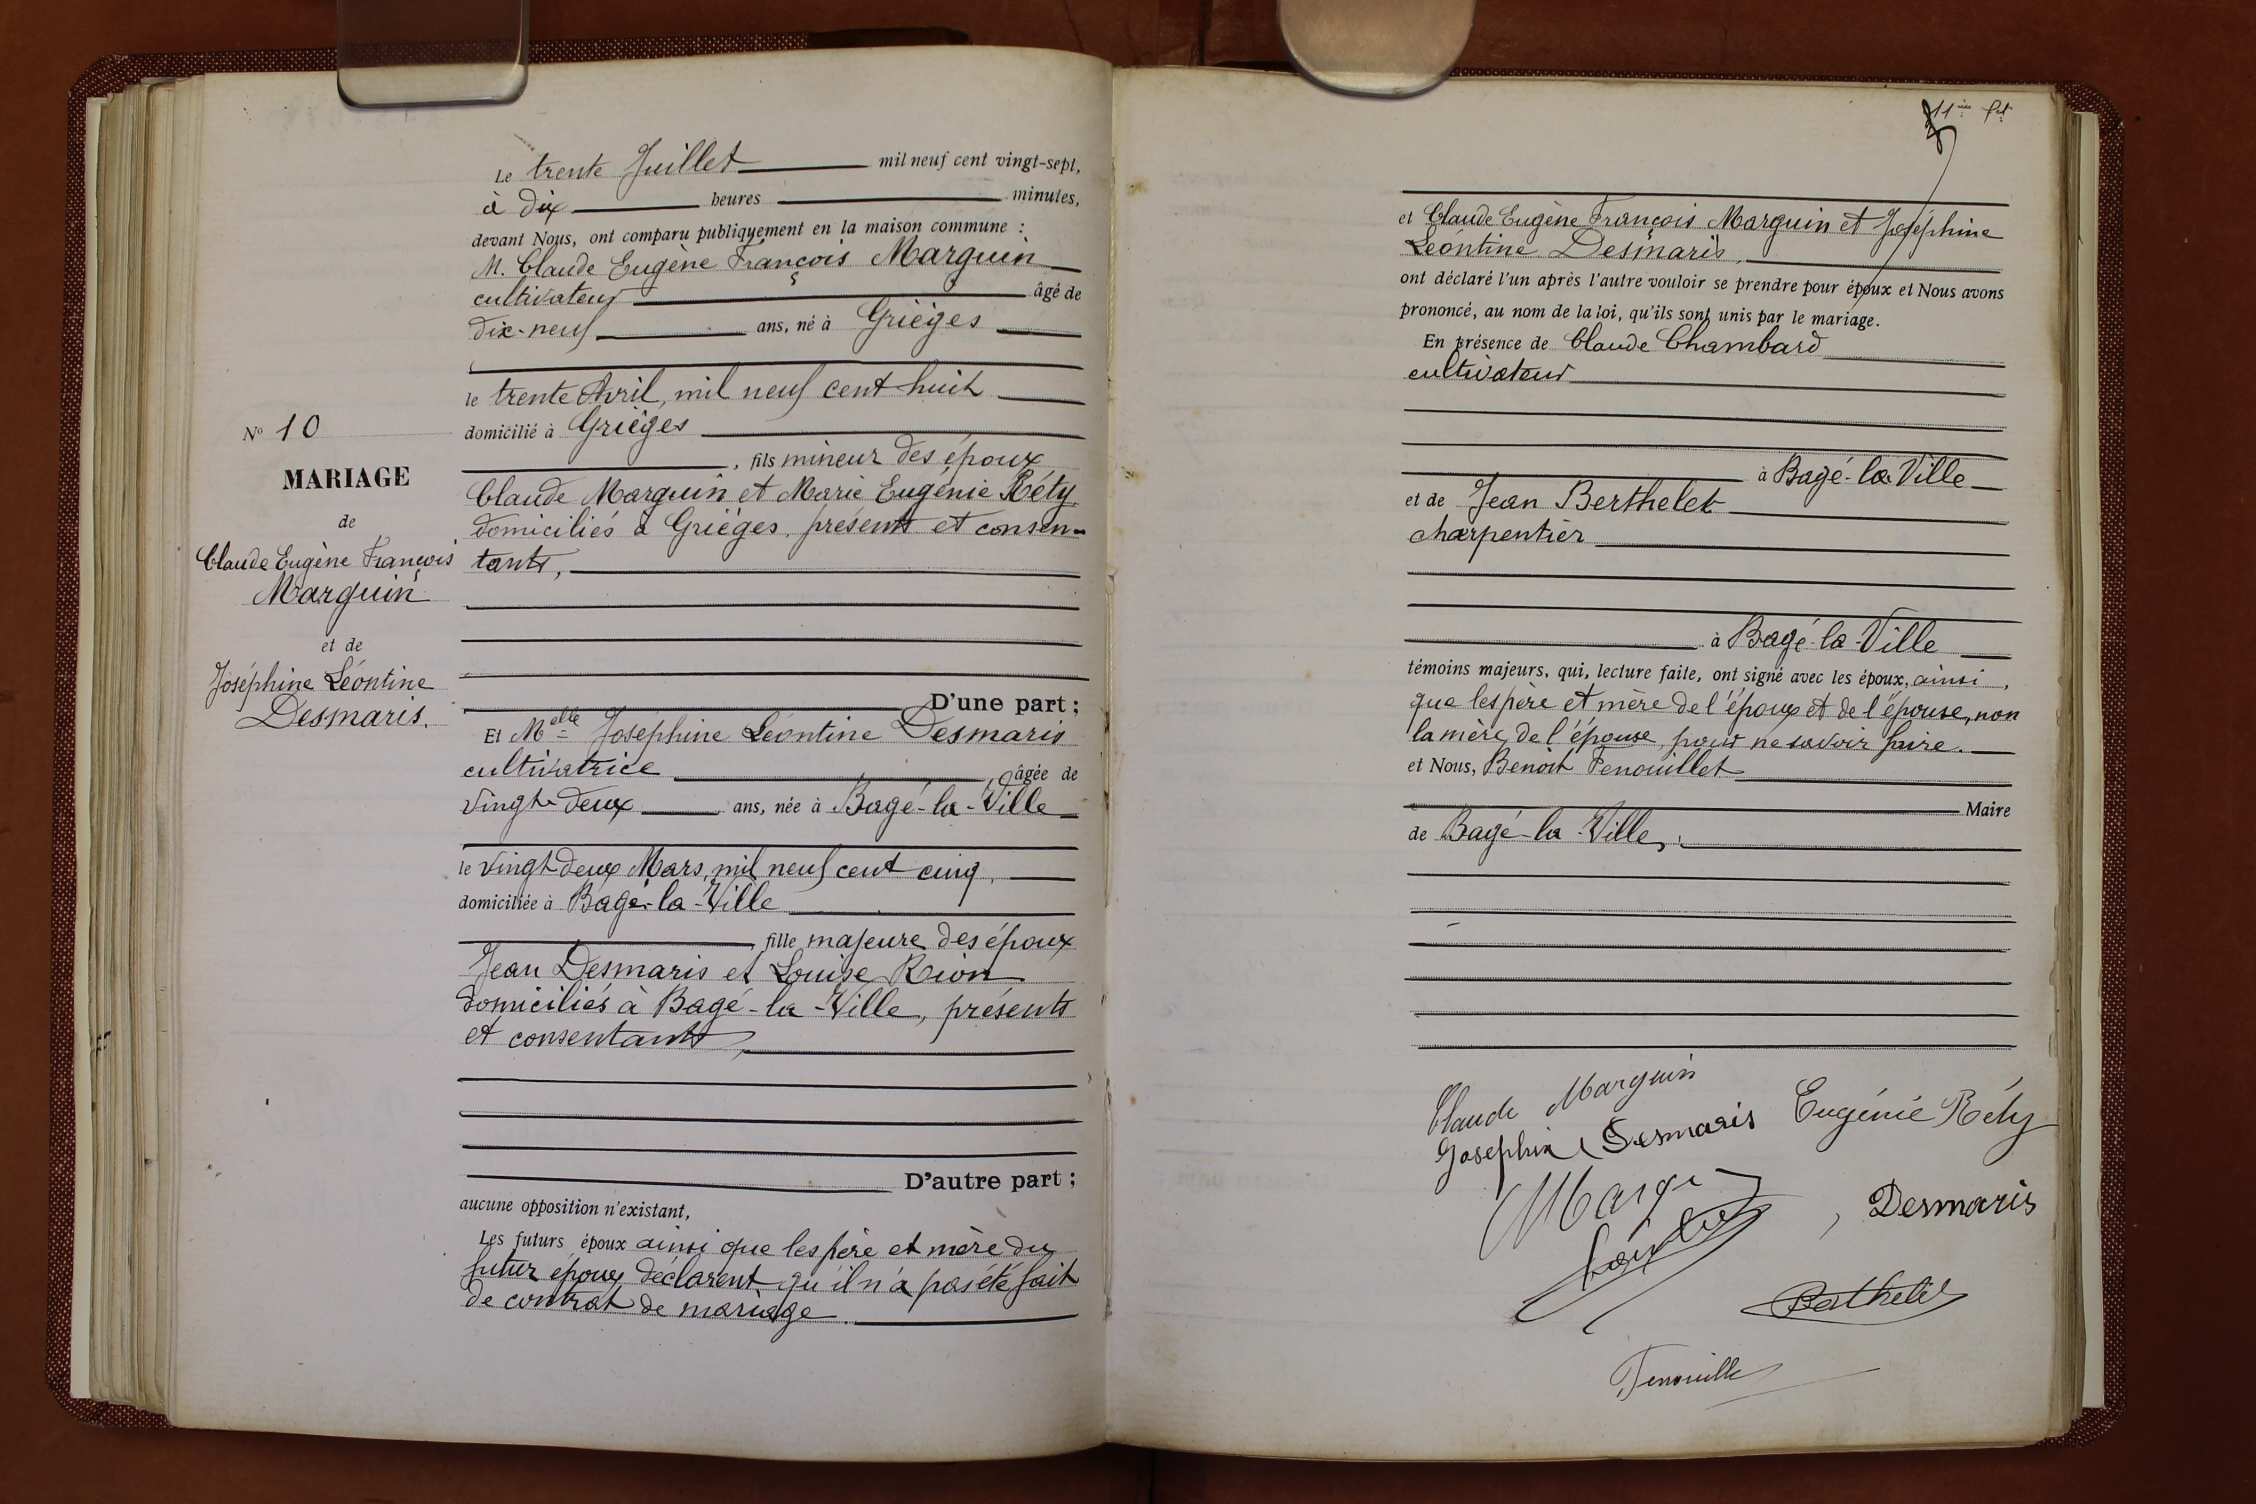 Le trente Juillet mil neuf cent vingt-sept,
à dix heures minutes,
devant Nous, ont comparu publiquement en la maison commune :
M. Claude Eugène François Marguin
cultivateur âgé de
dix-neuf ans, né à Grièges
le trente Avril, mil neuf cent huit
domicilié à Grièges
, fils mineur des époux
Claude Marguin et Marie Eugénie Réty
domiciliés à Grièges, présents et consen-
tants,
D'une part ;
Nº 10
MARIAGE
de
Claude Eugène François
Marguin
et de
Joséphine Léontine
Desmaris.
Et Melle Joséphine Léontine Desmaris
cultivatrice âgée de
vingt-deux ans, née à Bagé-la-Ville
le vingt deux Mars, mil neuf cent cinq,
domiciliée à Bagé-la-Ville
, fille majeure des époux
Jean Desmaris et Louise Rion
domiciliés à Bagé-la-Ville, présents
et consentants,
D'autre part ;
aucune opposition n'existant,
Les futurs époux ainsi que les père et mère du
futur époux déclarent qu'il n'a pas été fait
de contrat de mariage.
et Claude Eugène François Marguin et Joséphine
Léontine Desmaris,
ont déclaré l'un après l'autre vouloir se prendre pour époux et Nous avons
prononcé, au nom de la loi, qu'ils sont unis par le mariage.
En présence de Claude Chambard
cultivateur
à Bagé-la-Ville
et de Jean Berthelet
charpentier
à Bagé-la-Ville
témoins majeurs, qui, lecture faite, ont signé avec les époux, ainsi
que les père et mère de l'époux et de l'épouse, non
la mère de l'épouse, pour ne savoir faire.
et Nous, Benoit Penouillet
Maire
de Bagé-la-Ville,
Claude Marguin
Josephine Desmaris Eugénie Réty
Desmaris
Berthelet